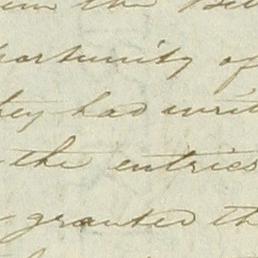 the Bill
portunity of
they had writ
the entries
granted th